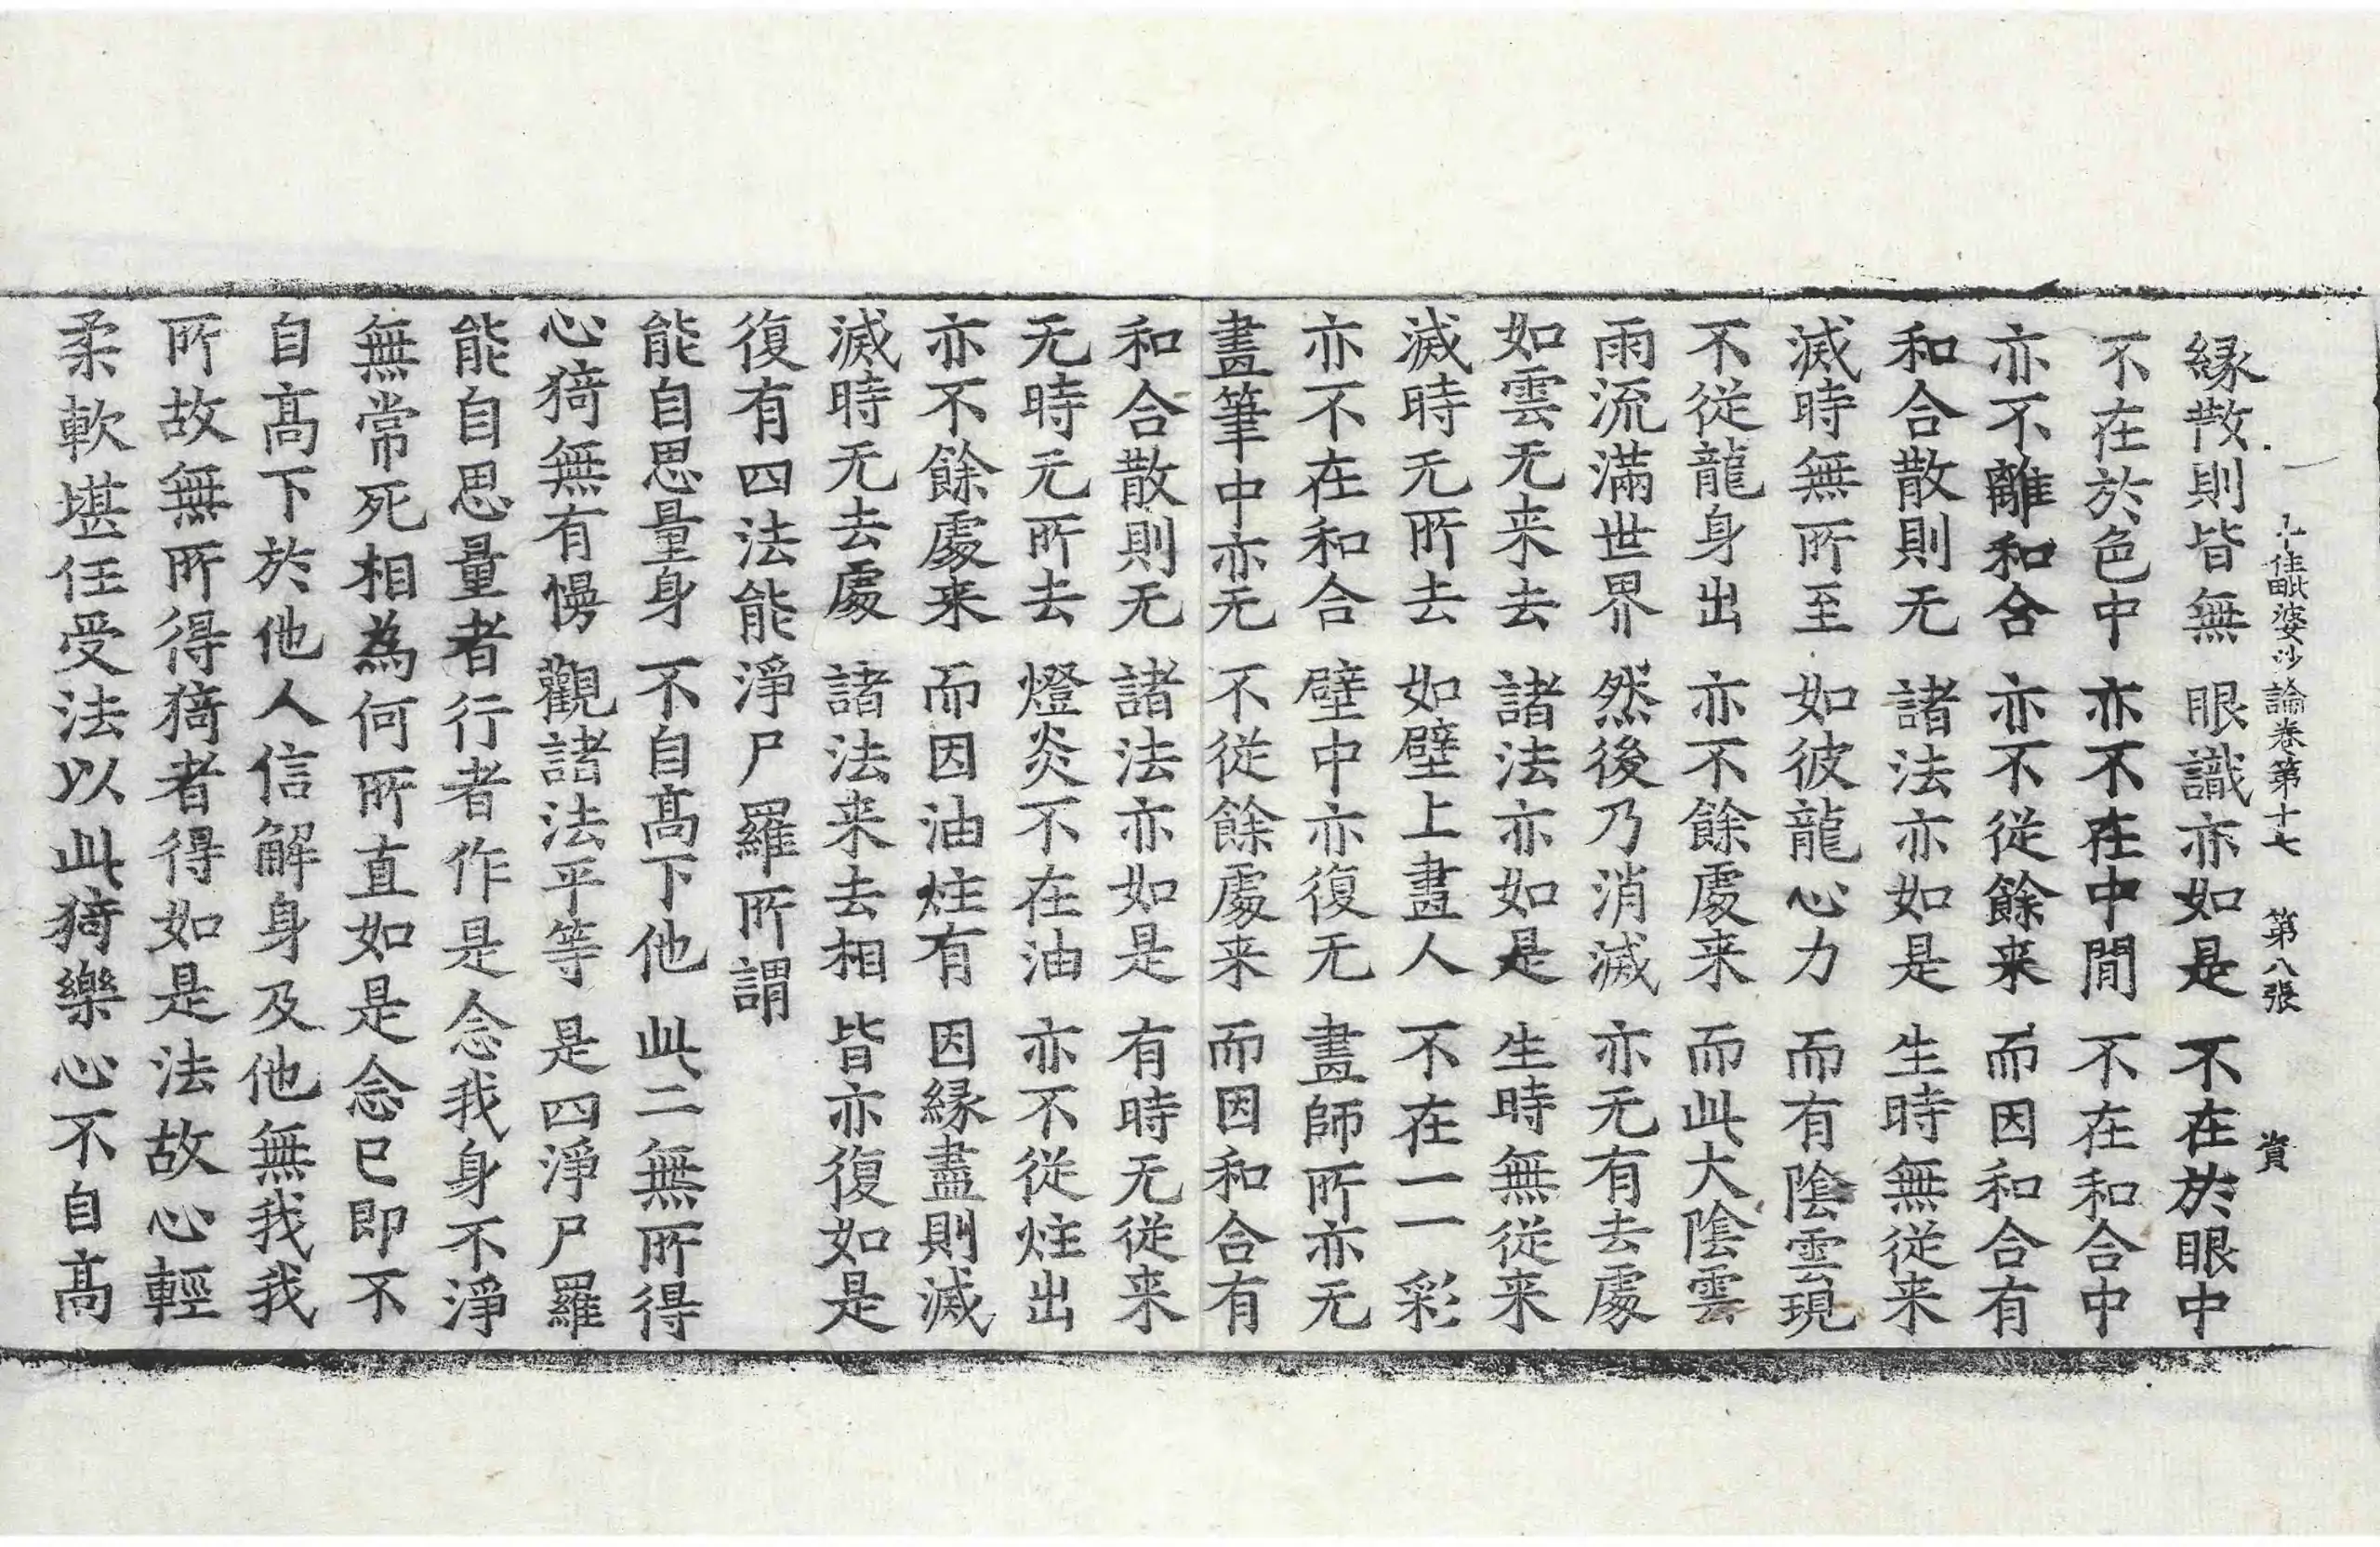 十住毗婆沙論卷第十七 第八張 資
緣散則皆無 眼識亦如是 不在於眼中
不在於色中 亦不在中閒 不在和合中
亦不離和合 亦不從餘来 而因和合有
和合散則无 諸法亦如是 生時無從来
滅時無所至 如彼龍心力 而有隂雲現
不從龍身出 亦不餘處来 而此大隂雲
雨流滿世界 然後乃消滅 亦无有去處
如雲无来去 諸法亦如是 生時無從来
滅時无所去 如壁上畫人 不在一一彩
亦不在和合 壁中亦復无 畫師所亦无
畫筆中亦无 不從餘處来 而因和合有
和合散則无 諸法亦如是 有時无從来
无時无所去 燈炎不在油 亦不從炷出
亦不餘處来 而因油炷有 因緣盡則滅
滅時无去處 諸法来去相 皆亦復如是
復有四法能淨尸羅所謂
能自思量身 不自髙下他 此二無所得
心猗無有慢 觀諸法平等 是四淨尸羅
能自思量者行者作是念我身不淨
無常死相為何所直如是念已即不
自髙下於他人信解身及他無我我
所故無所得猗者得如是法故心輕
柔軟堪任受法以此猗樂心不自髙